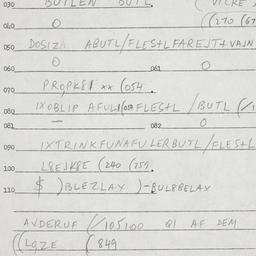 030 BUTLEN BUTL
040 O ((270 (67
050 DOSIZA ABUTL/FLES+LFAREJT+VAJN
060 O 061 O
070 PROPK81 xx (054
080 IXOBLIP AFUL1(054 FLES+L /BUTL
081 — 082 O
090 IXTRINKFUNAFULERBUTL/FLES+L
100 L8EJK8E (240 (259
110 $ )BLEZLAY )-BUL8BELAX
AVDERUF (/105100 QI AF DEM
((LQZE (849